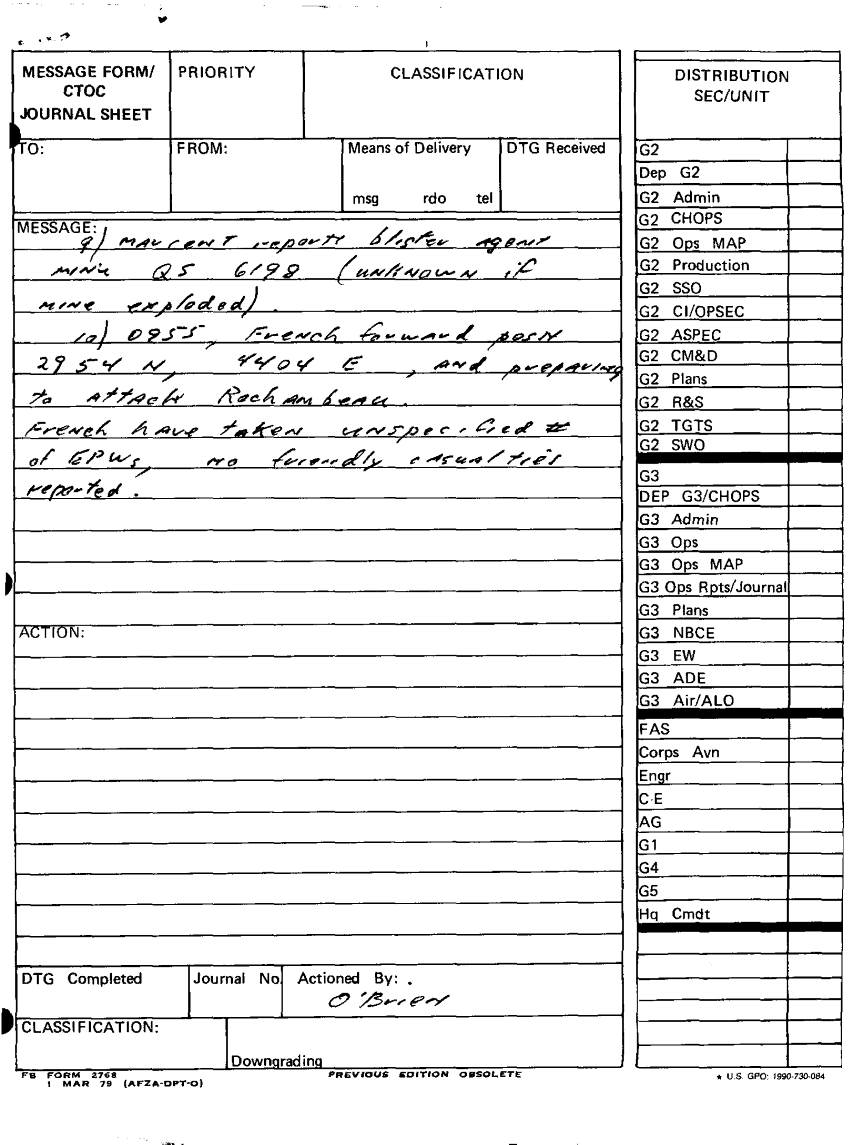 MESSAGE FORM/
CTOC
JOURNAL SHEET
PRIORITY
CLASSIFICATION
TO:
FROM:
Means of Delivery
msg rdo tel
DTG Received
MESSAGE:
9) MARCENT reports blister agent
mine QS 6198 (unknown if
mine exploded).
10) 0955, French forward posn
2954 N, 4404 E , and preparing
to attack Rochambeau.
French have taken unspecified #
of EPWs, no friendly casualties
reported.
ACTION:
DTG Completed
Journal No.
Actioned By: .
O'Brien
CLASSIFICATION:
Downgrading
FB FORM 2768
1 MAR 79 (AFZA-DPT-O)
PREVIOUS EDITION OBSOLETE
DISTRIBUTION
SEC/UNIT
G2
Dep G2
G2 Admin
G2 CHOPS
G2 Ops MAP
G2 Production
G2 SSO
G2 CI/OPSEC
G2 ASPEC
G2 CM&D
G2 Plans
G2 R&S
G2 TGTS
G2 SWO
G3
DEP G3/CHOPS
G3 Admin
G3 Ops
G3 Ops MAP
G3 Ops Rpts/Journal
G3 Plans
G3 NBCE
G3 EW
G3 ADE
G3 Air/ALO
FAS
Corps Avn
Engr
C-E
AG
G1
G4
G5
Hq Cmdt
★ U.S. GPO: 1990-730-084